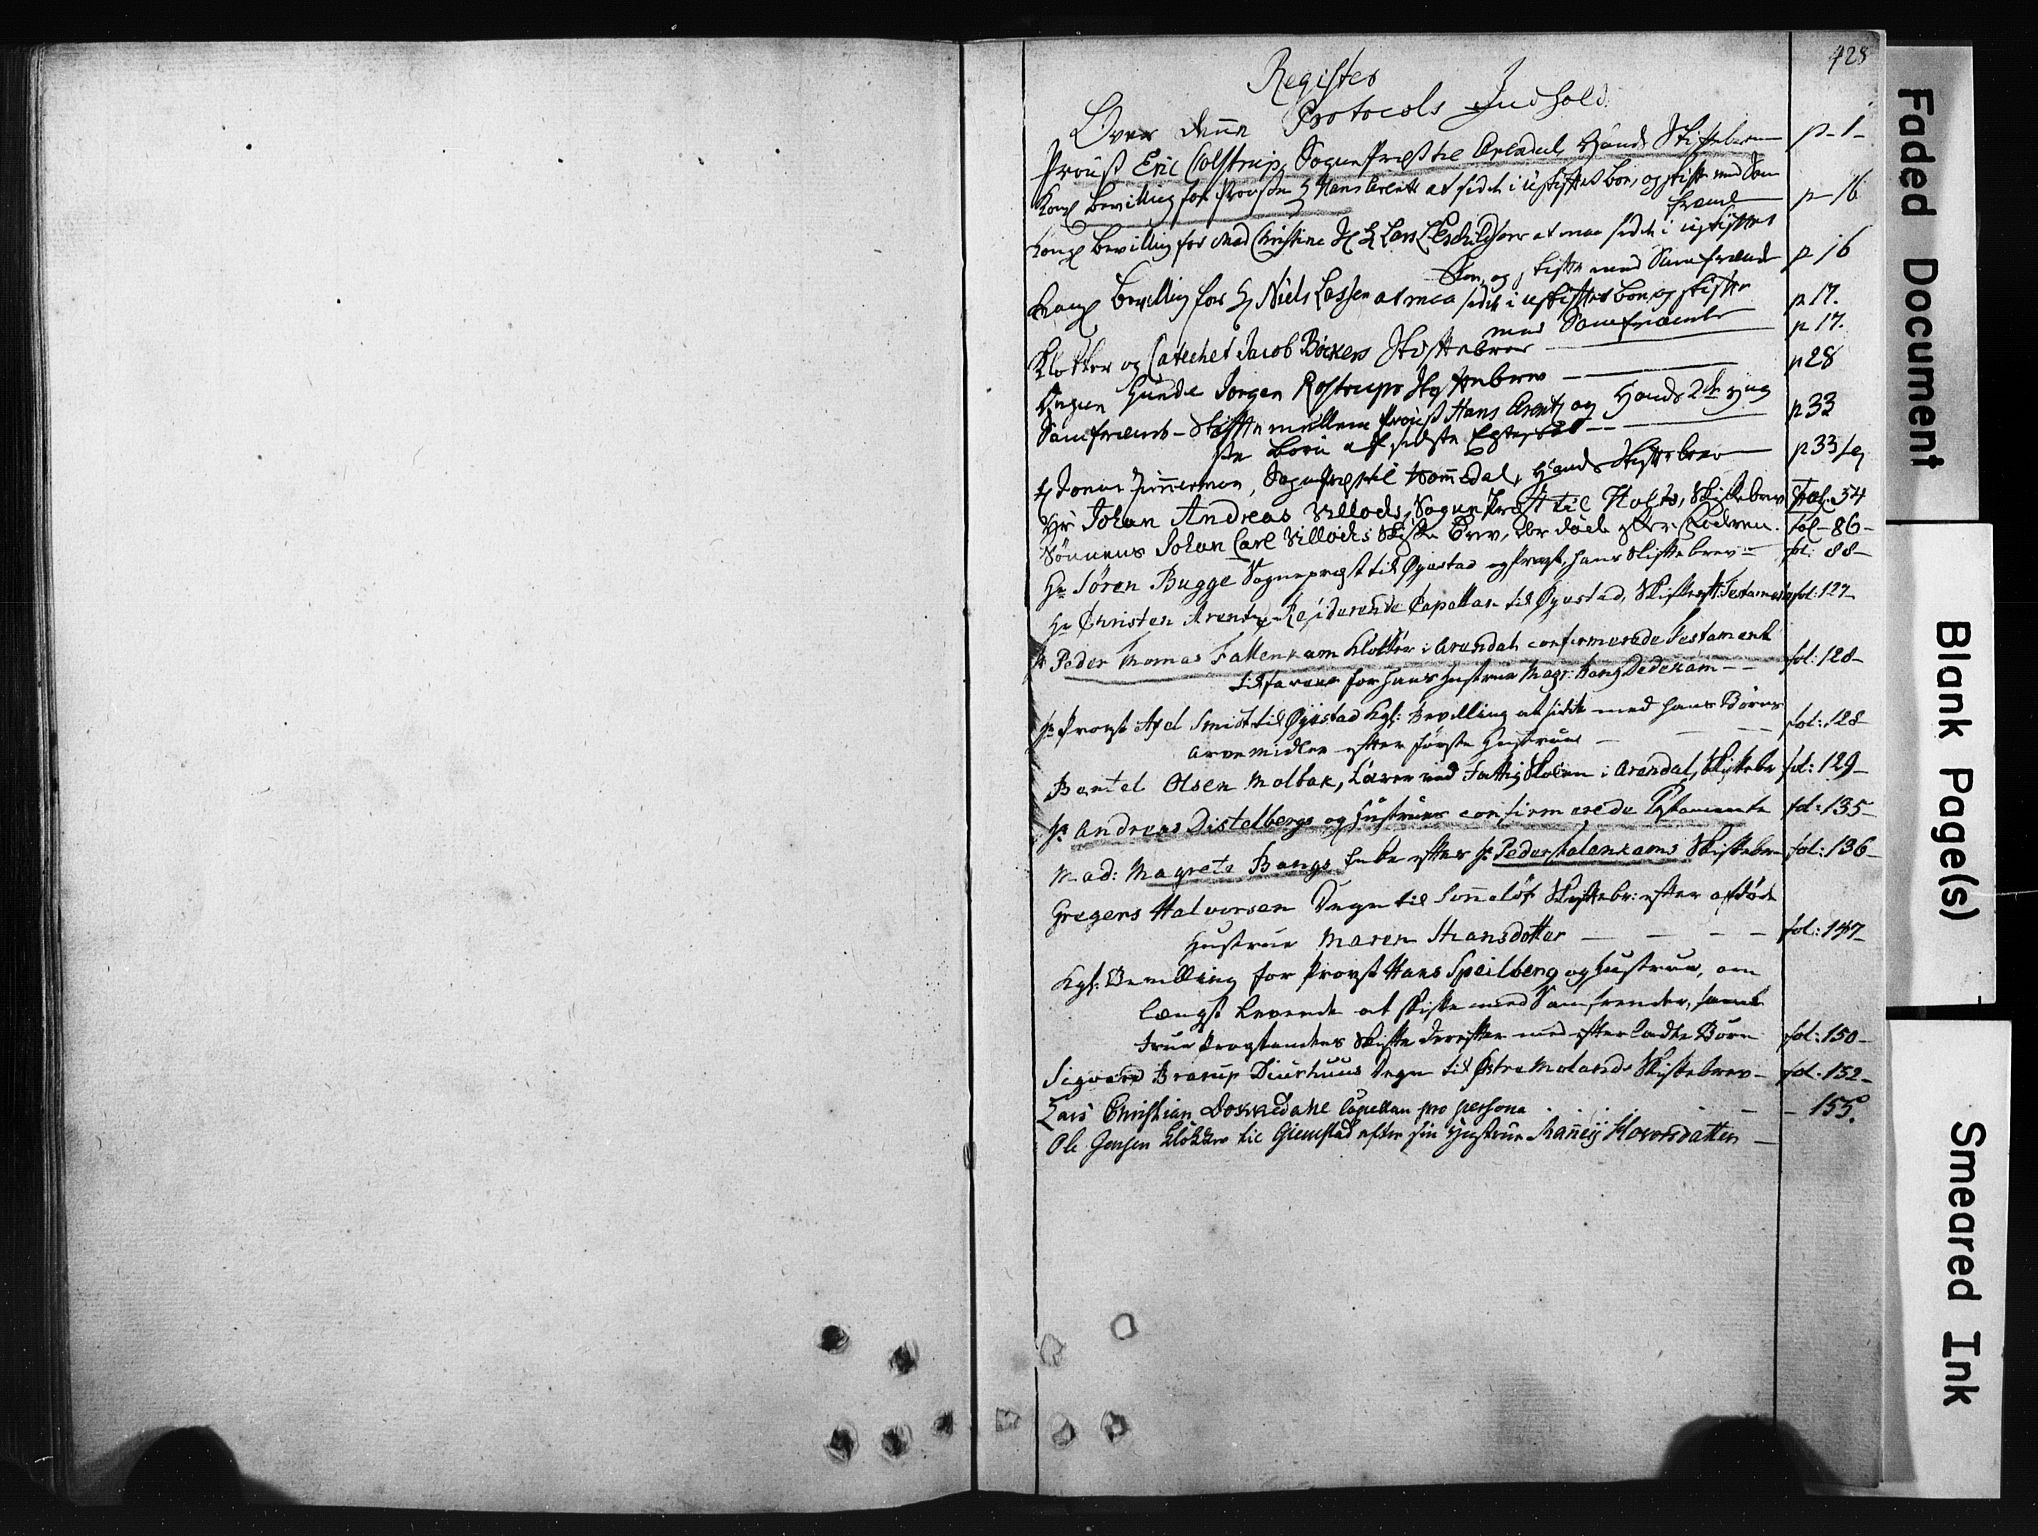 428
Register
Over denne Protocols Indhold.
Proust Eric Colstrup, Sogne Præst til Arendal, Hands Skiftebrev p-1-
Kongl Bevilling for Provsten H Hans Arentz at sidde i uskiftet boe, og skifte med Sam
frænd p-16
Kongl Bevilling for Mad Christine at maa sidde i uskiftet
Boe, og skifte med Samfrænder p 16
Kongl Bevilling for H Niels Lassen at maa sidde i uskiftet boe, og skifte
med Samfrænder p 17.
Klokker og Catechet Jacob Böckers Skiftebrev p 17.
Degnen Gunde Jørgen Rostrups Skiftebrev p 28
Samfrænd-Skifte mellem Proust Hans Arentz og Hands 2de yng
ste Børn af sidste Egteskab -- p 33
H Jonas Zimmerman, Sogne Præst til Hommedal, Hands Skiftebrev p 33
Hr Johan Andreas Willods, Sogne Præst til Holts, Skiftebrev Fol: 54
Sønnens Johan Carl Willodis Skifte Brev, der døde efter Fadren. fol- 86-
Hr Søren Bugge Sognepræst til Øyestad og Provst, hans Skiftebrev - fol: 88-
Hr Christen Arentz, Residerende Capellan til Øyestad, Skifte fol: 127-
Hr Peder Thomas Falkenam Klokker i Arendal confirmerede Testament
til faveur for hans Hustrue Magr: Bang Dedekam - - fol: 128-
Hr Provst Axel Smidt til Øyestad Kgl: Bevilling at sidde med hans Børns
Arvemidler efter første Hustrue - - - fol: 128
Bentel Olsen Molbak, Lærer ved Fattig Skolen i Arendal, Skiftebr fol: 129-
Hr Andreas Distelbergs og Hustrues confirmerede Testamente fol: 135-
Mad: Magrete Bangs Enke efter Hr Peder Falenkams Skiftebrev fol: 136-
Gregers Halvorsen Degn til Sønneløf Skiftebr: efter afdøde
Hustrue Maren Hansdotter - - - - fol: 147-
Kgl: Bevilling for Provst Hans Speilberg og Hustrue, om
længst Levende at skifte med Samfrender, samt
Frue Provstindes Skifte derefter med efterladte Børn fol: 150-
Sigvard Brorup Diurhuus Degn til Østre Molands Skiftebrev - fol: 152-
Lars Christian Capellan pro persona - - 155.
Ole Jensen Klokker til Gierrestad efter sin Hustrue Ranneÿ Hovorsdatter -
Faded Document
Blank Page(s)
Smeared Ink